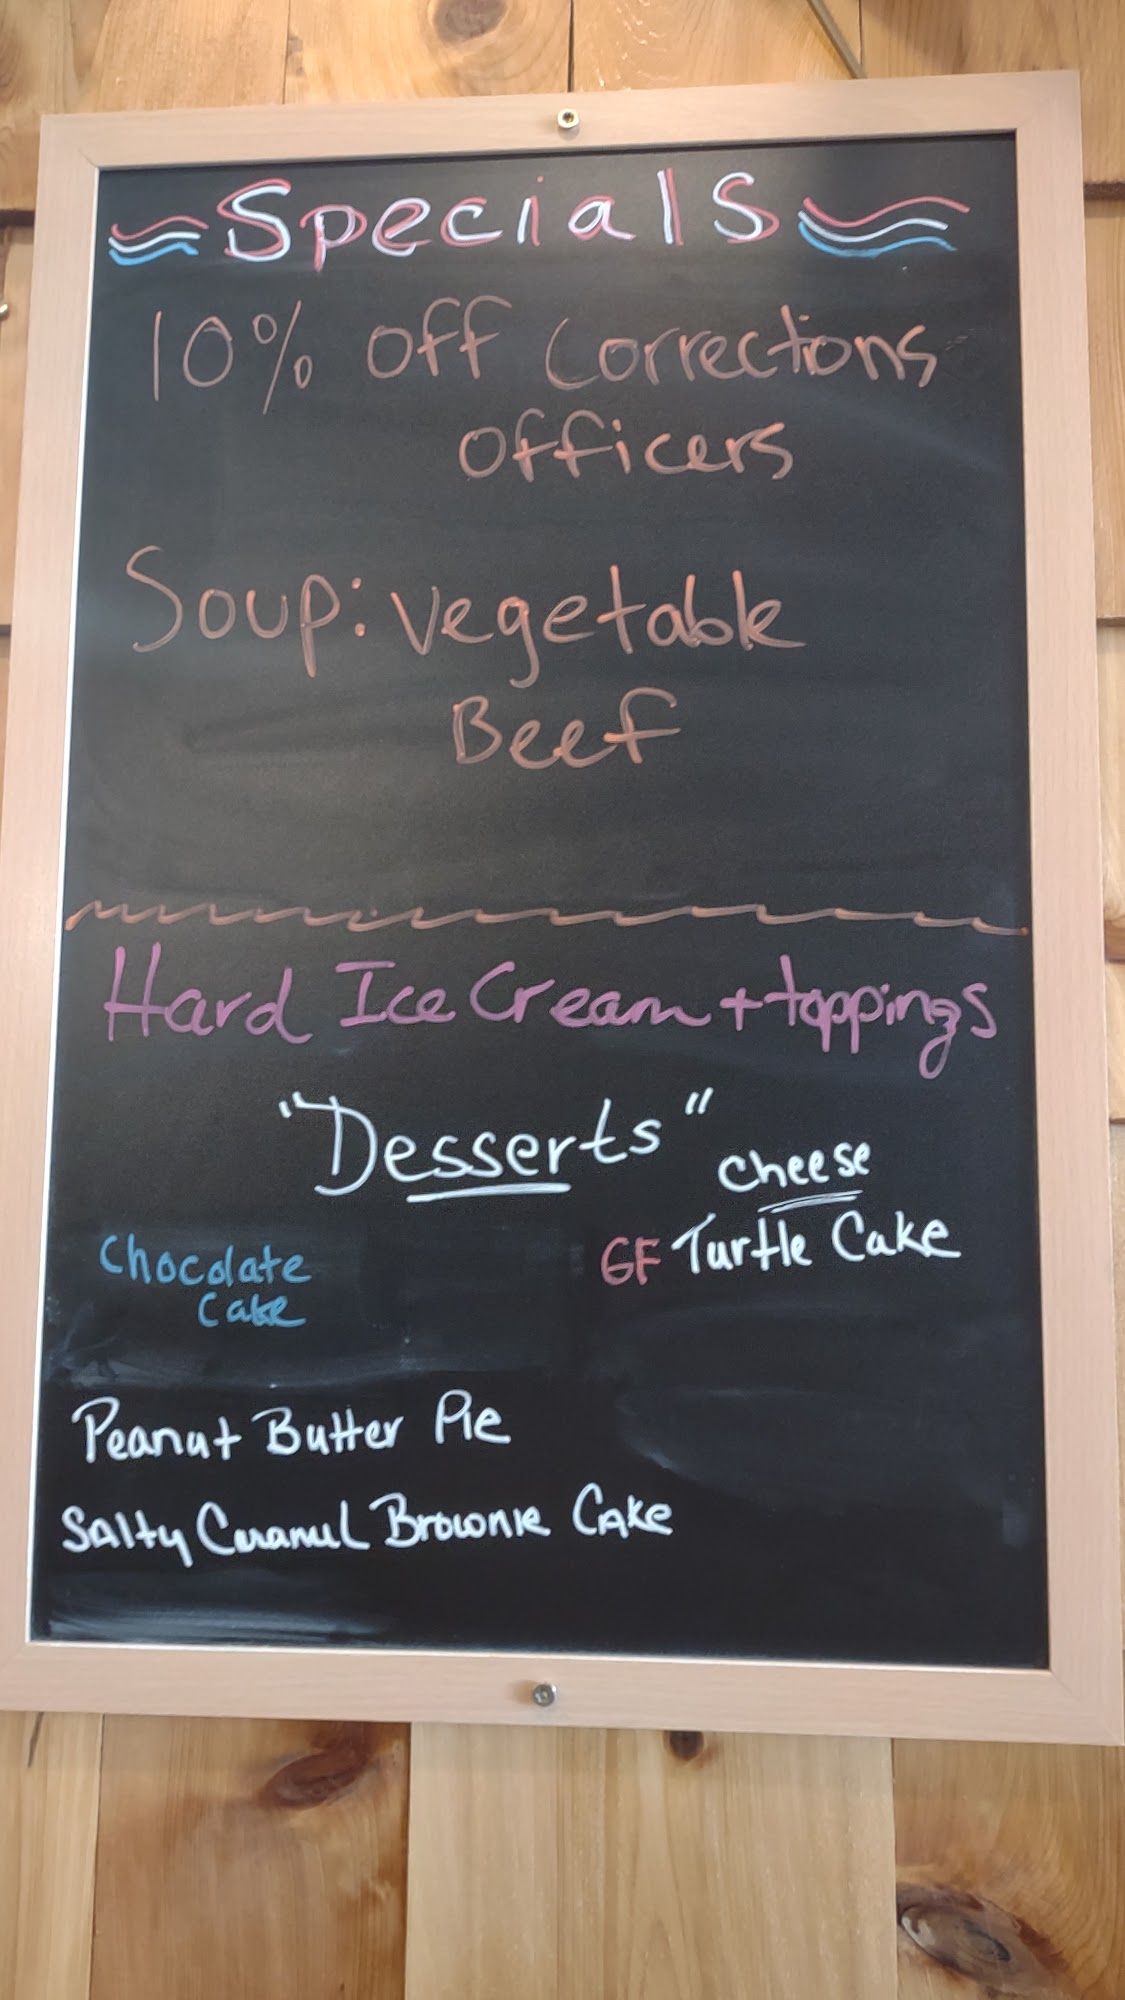 Specials
10% off Corrections
officers
Soup: vegetable
Beef
Hard Ice Cream + toppings
"Desserts"
Cheese
GF Turtle Cake
Chocolate
Cake
Peanut Butter Pie
Salty Caramel Brownie Cake